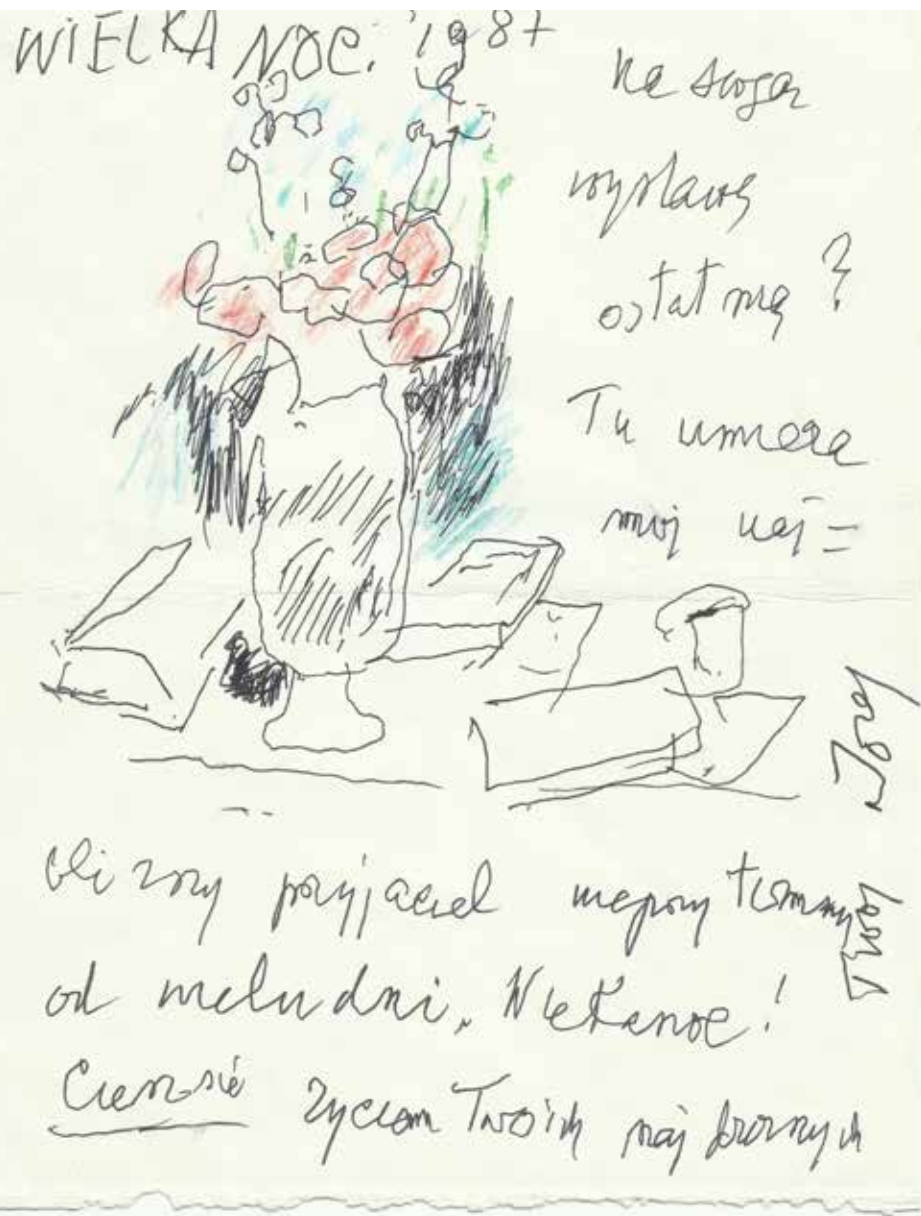 WIELKA NOC. 1987
na swoją
wystawę
ostatnią?
Tu umiera
mój naj=
bliższy przyjaciel nieprzytomny
od wielu dni. Wielkanoc!
Ciesz się życiem Twoich najdroższych
Twój